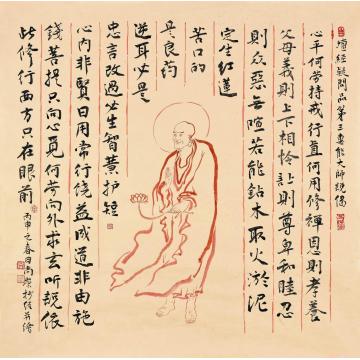 壇經疑問品第三惠能大師說偈
心平何勞持戒行直何用修禪恩則孝養
父母義則上下相憐讓則尊卑和睦忍
則眾惡無喧若能鉆木取火淤泥
定生紅蓮
苦口的
是良药
逆耳必是
忠言改過必生智慧护短
心内非賢日用常行饒益成道非由施
錢菩提只向心覓何勞向外求玄听說依
此修行西方只在眼前
丙申之春日